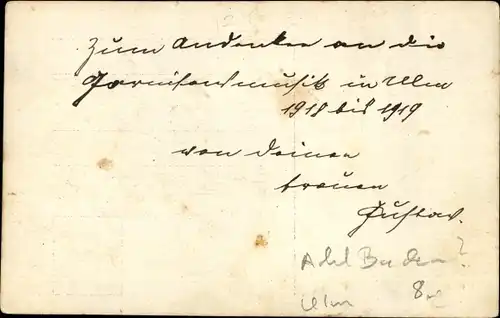 Zum Andenken an die
Garnisonsmusik in Ulm
1918 bis 1919
von deinem
treuen
Gustav.
Baden ?
Ulm 8